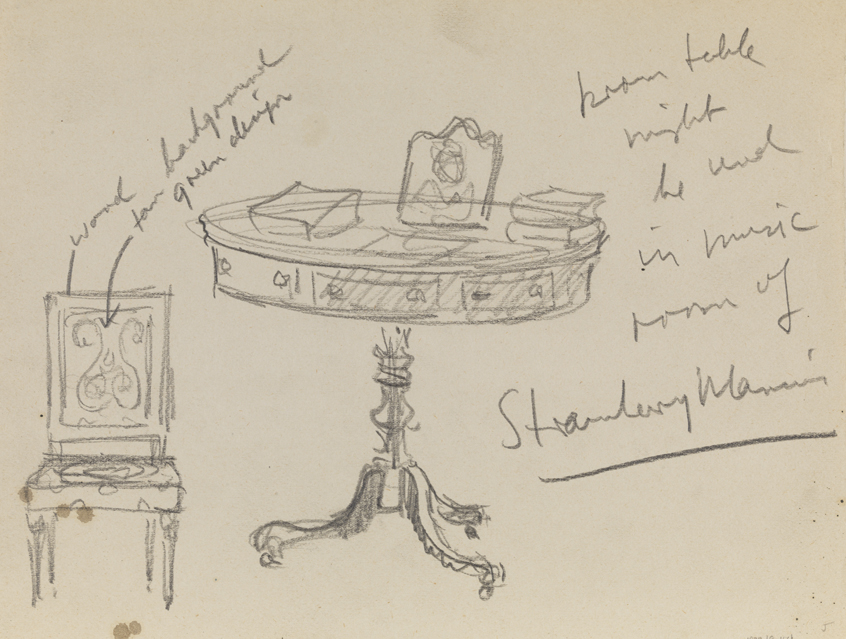 wood
tan background
green design
table
might
be used
in music
room of
Strawberry Mansion